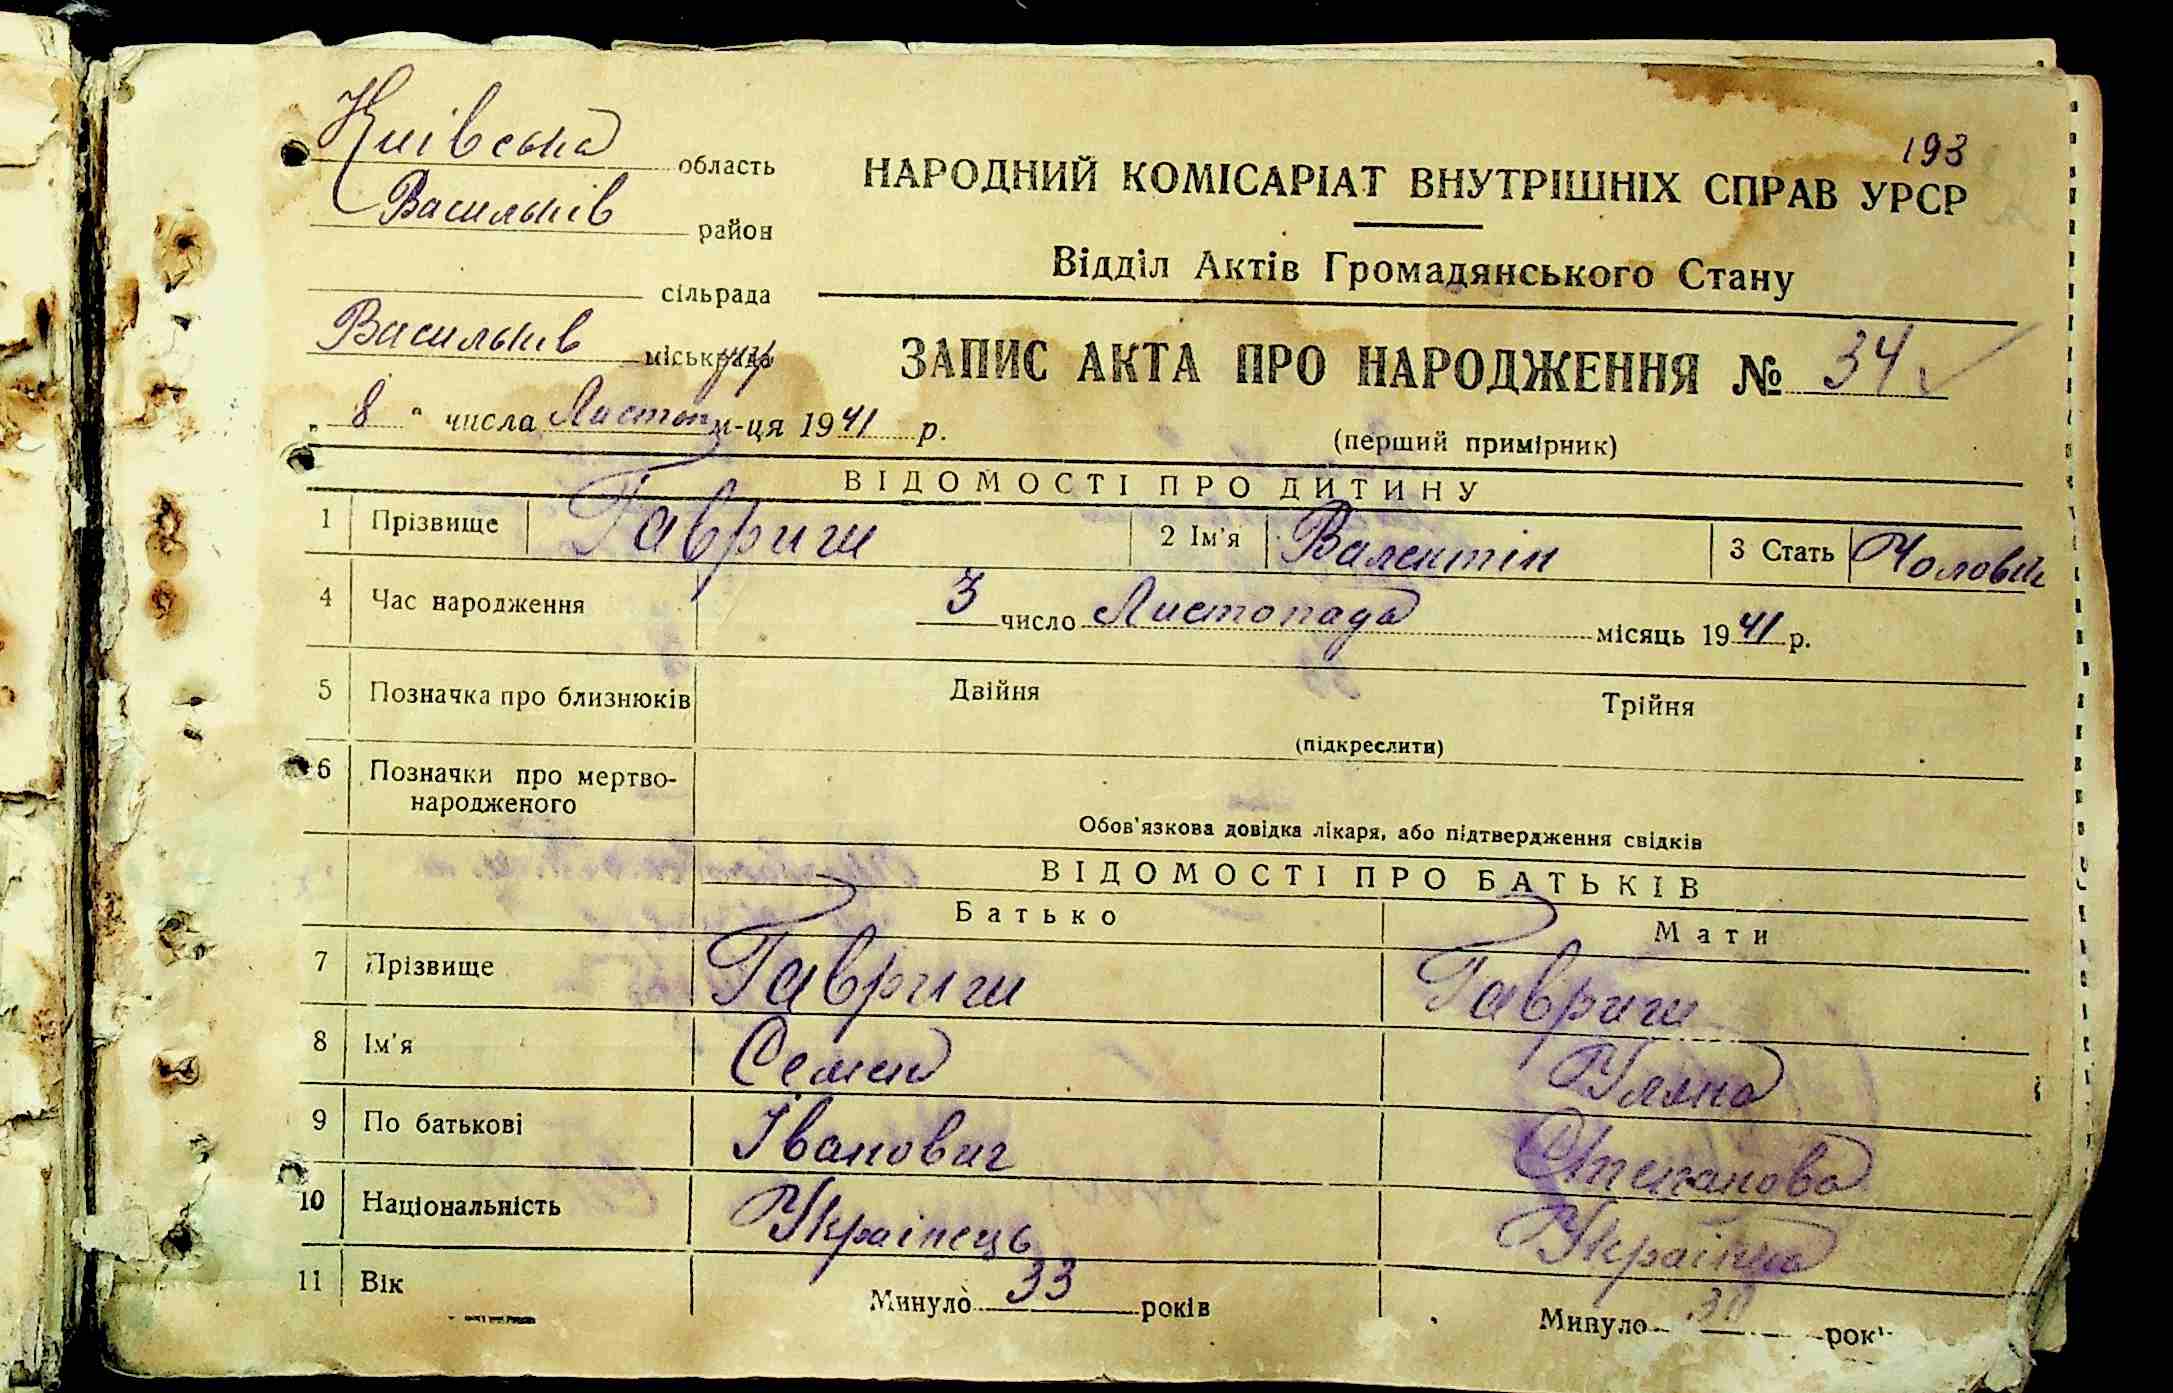 193
Київська область
Васильків район
сільрада
Васильків міськрада
НАРОДНИЙ КОМІСАРІАТ ВНУТРІШНІХ СПРАВ УРСР
Відділ Актів Громадянського Стану
ЗАПИС АКТА ПРО НАРОДЖЕННЯ № 34
„ 8 " числа Листоп м-ця 1941 р.
(перший примірник)
ВІДОМОСТІ ПРО ДИТИНУ
1 Прізвище Гавриш 2 Ім'я Валентін 3 Стать Чоловіч
4 Час народження 3 число Листопада місяць 1941 р.
5 Позначка про близнюків Двійня Трійня
(підкреслити)
6 Позначки про мертво-
народженого
Обов'язкова довідка лікаря, або підтвердження свідків
ВІДОМОСТІ ПРО БАТЬКІВ
Батько Мати
7 Прізвище Гавриш Гавриш
8 Ім'я Семен Уляна
9 По батькові Іванович Степанова
10 Національність Українець Українка
11 Вік Минуло 33 років Минуло 30 рок